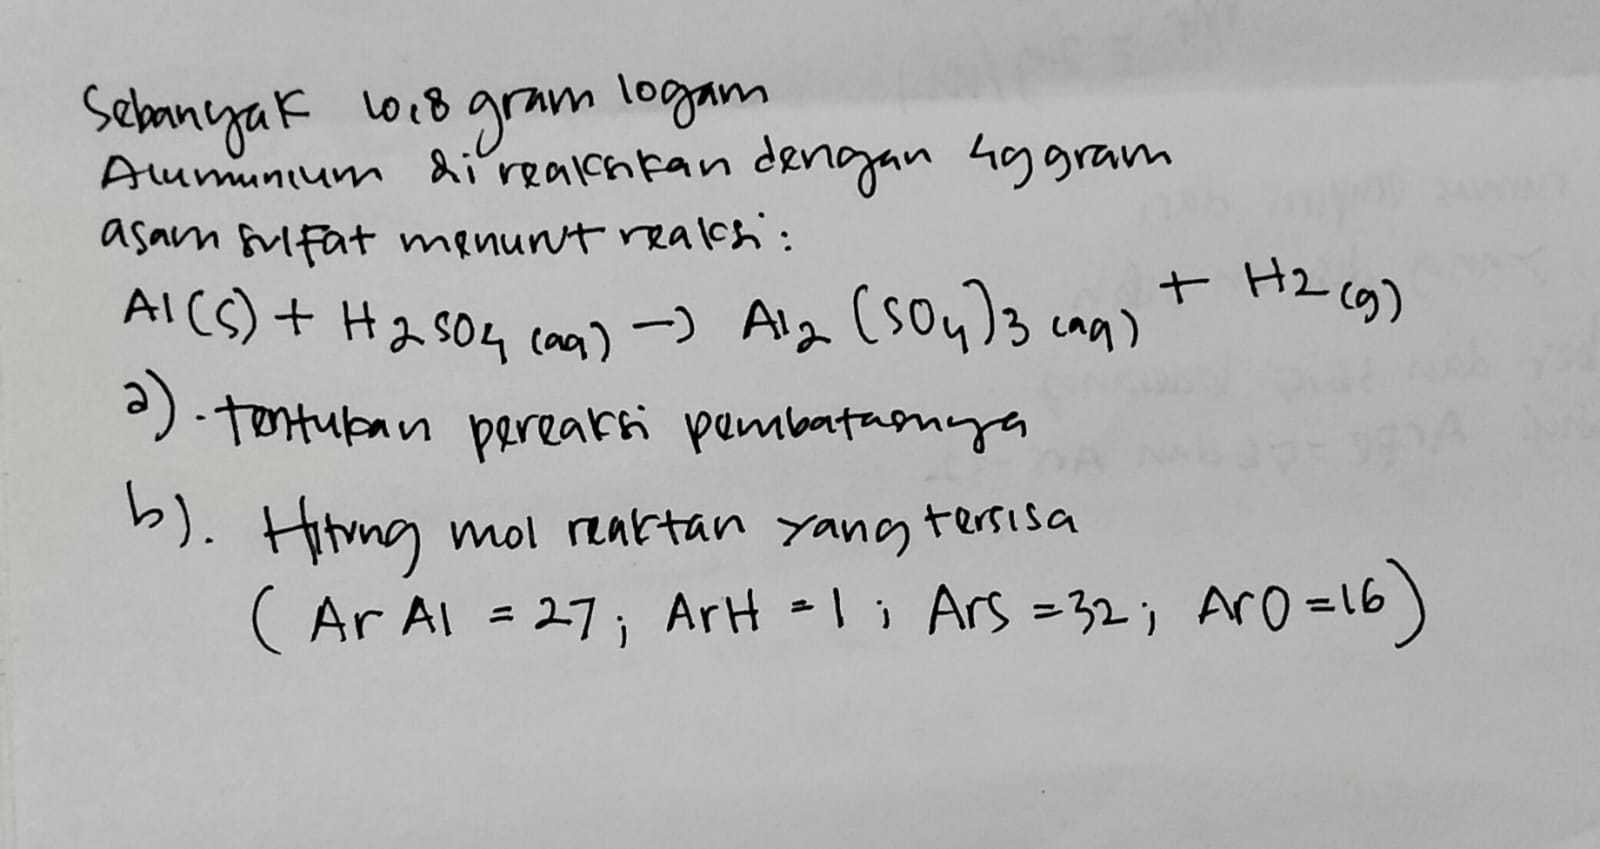 Sebanyak 10,8 gram logam
Alumunium di reaksikan dengan 49 gram
asam sulfat menurut reaksi :
Al(s) + H2SO4 (aq) → Al2 (SO4)3 (aq) + H2 (g)
a). tentukan pereaksi pembatasnya
b). Hitung mol reaktan yang tersisa
( Ar Al = 27 ; Ar H = 1 ; Ar S = 32 ; Ar O = 16 )